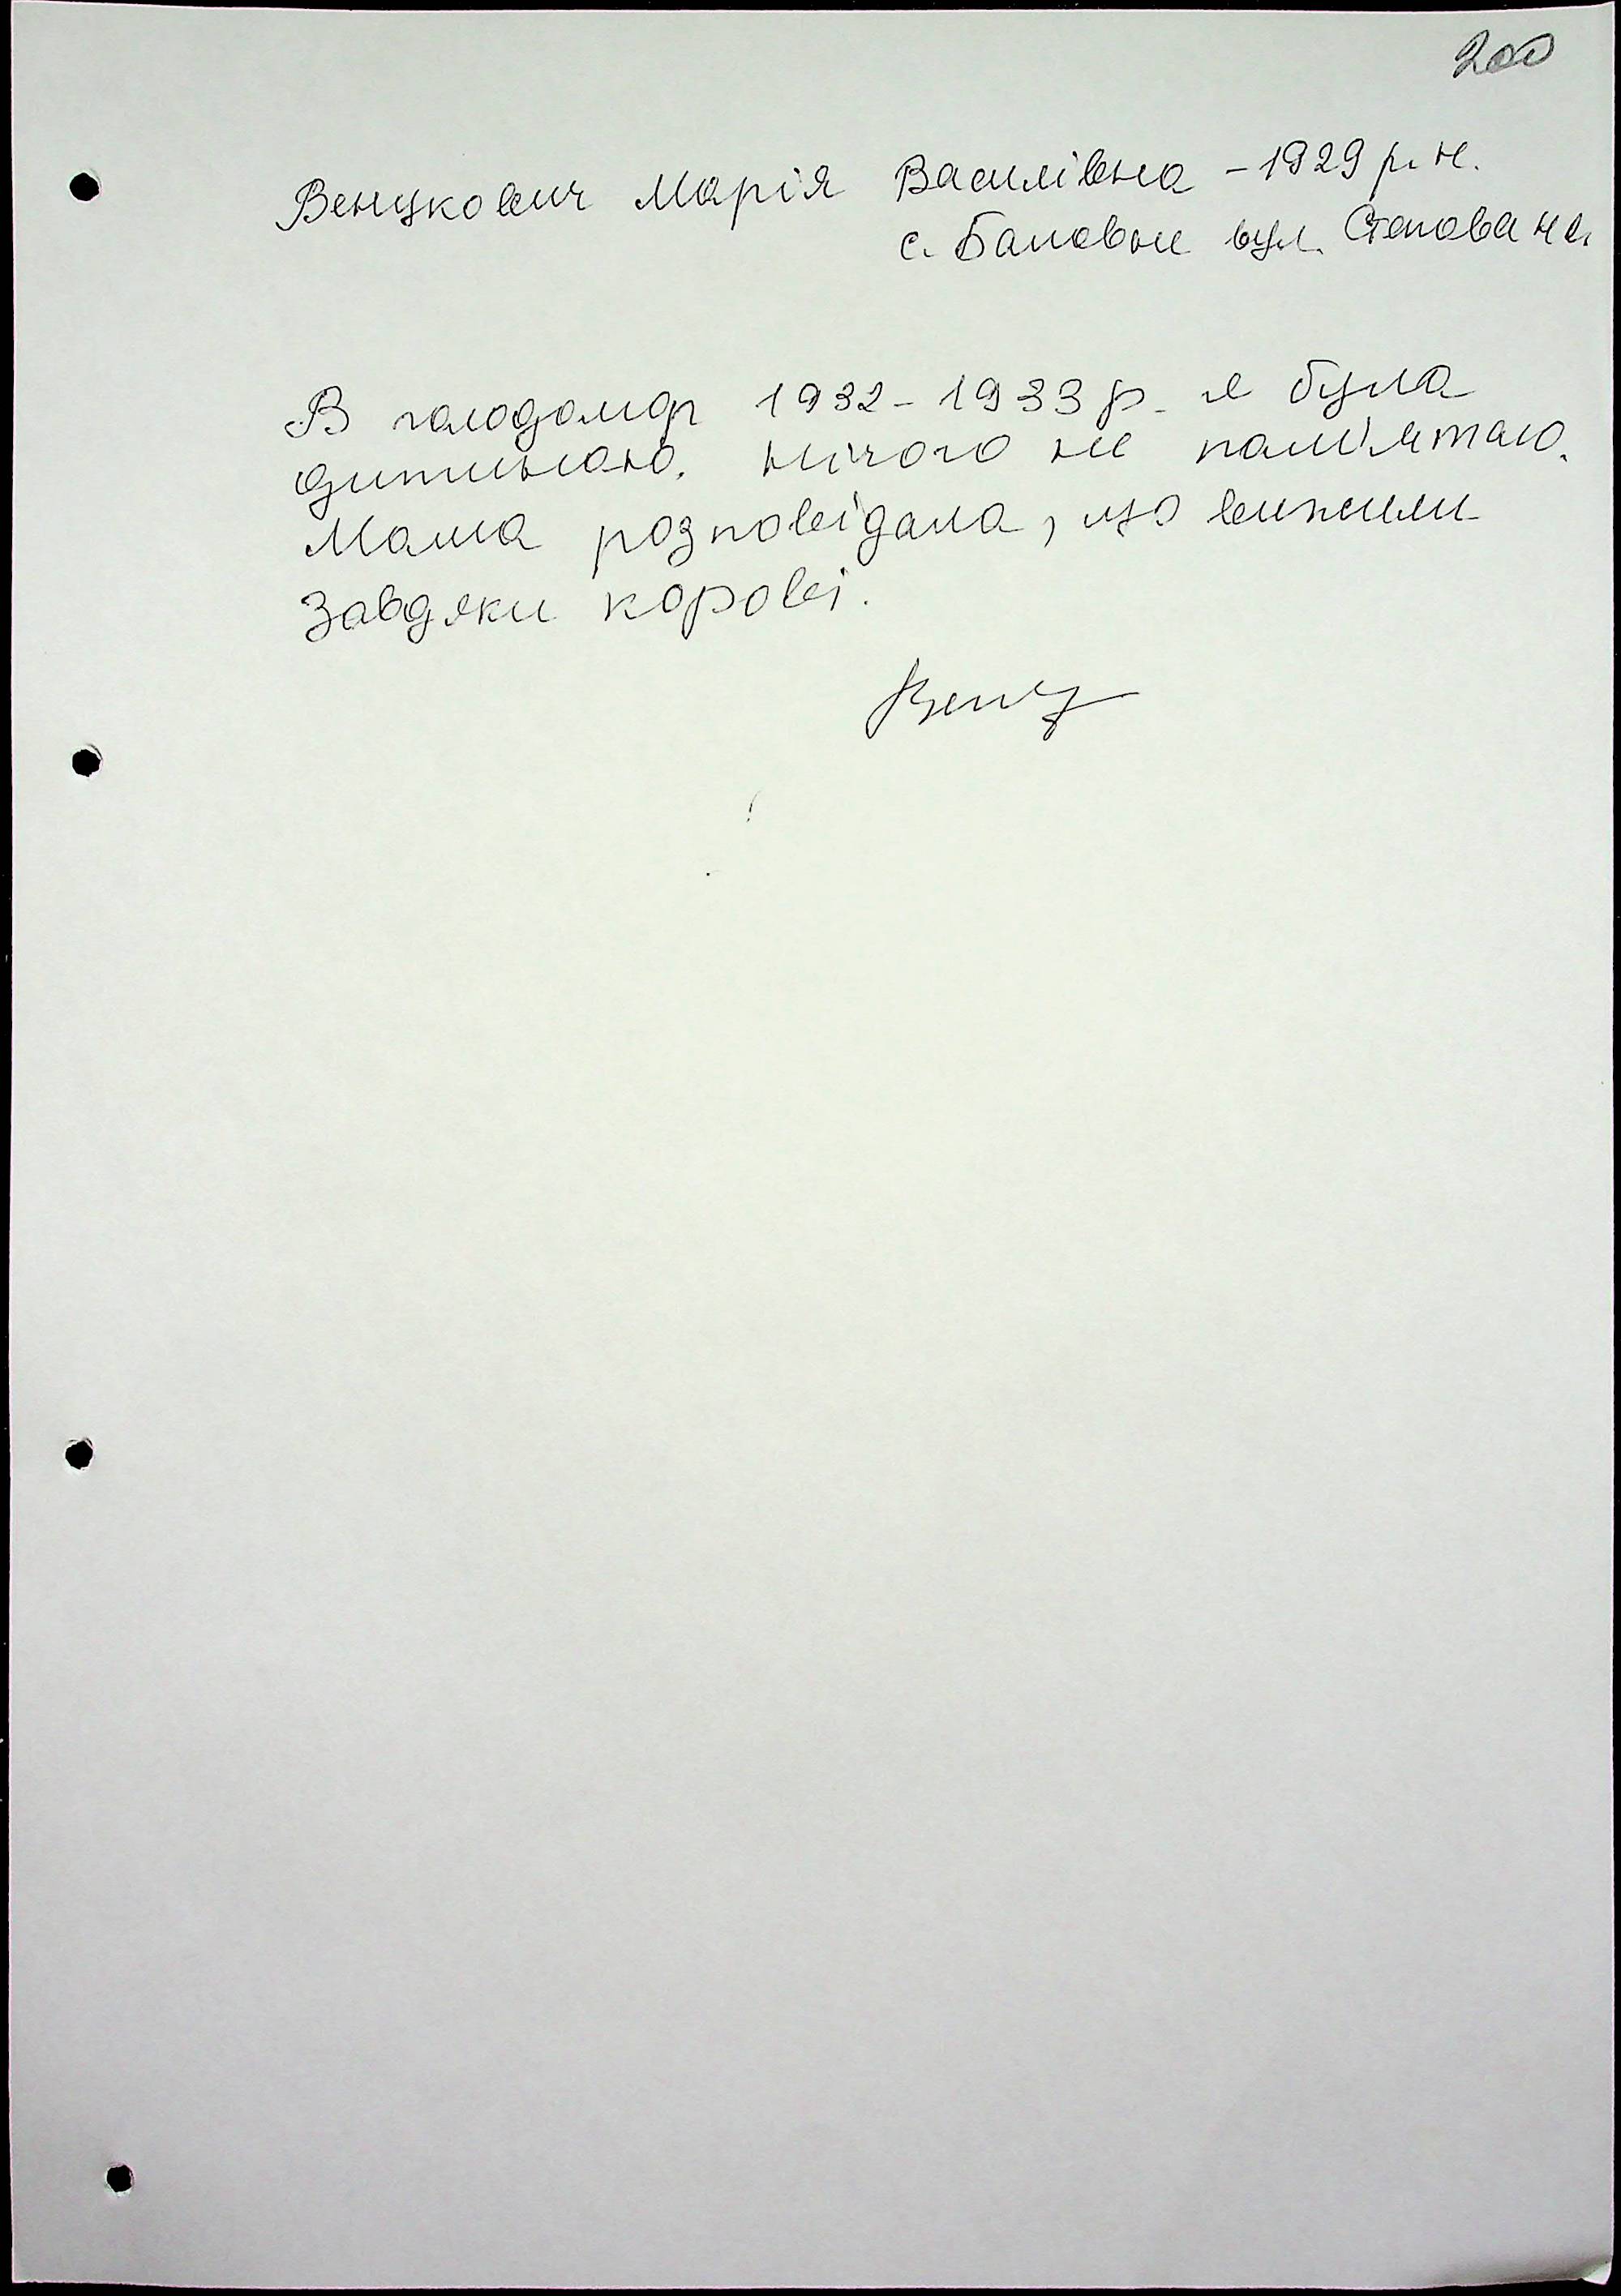 200
Венцкович Марія Василівна - 1929 р. н.
с. Баловне вул. Степова
В голодомор 1932-1933 р. я була
дитиною, нічого не пам'ятаю.
Мама розповідала, що вижили
завдяки корові.
Венц